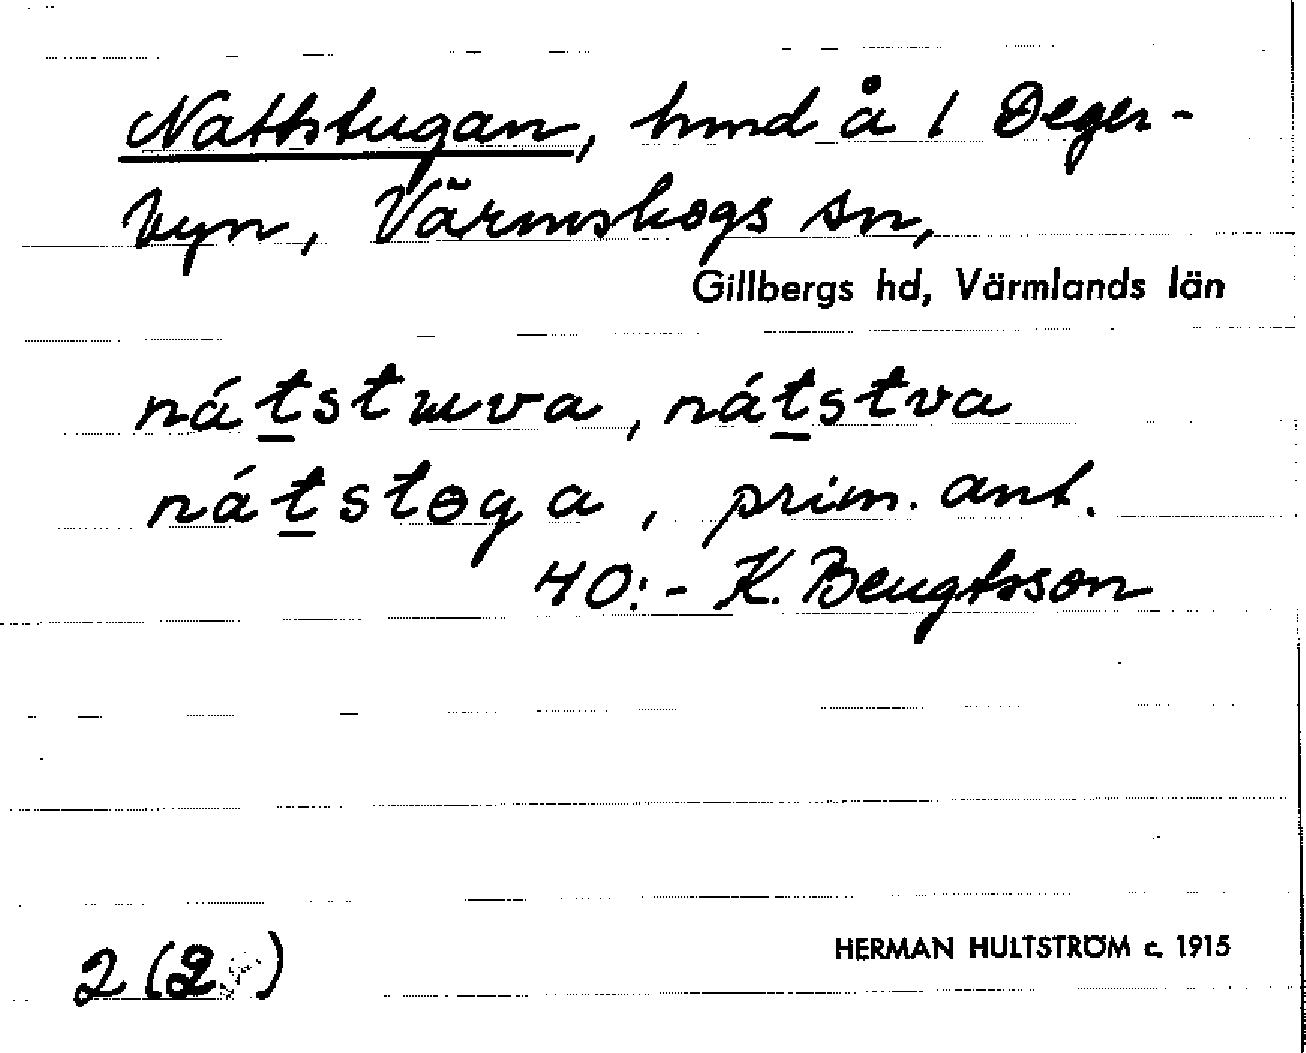 Nattstugan, hmd å 1 Deger-
byn, Värmskogs sn,
Gillbergs hd, Värmlands län
nátstɯva, nátstva
nátstɵga, prim. ant.
40:- K. Bengtsson
2 (2 )
HERMAN HULTSTRÖM c. 1915